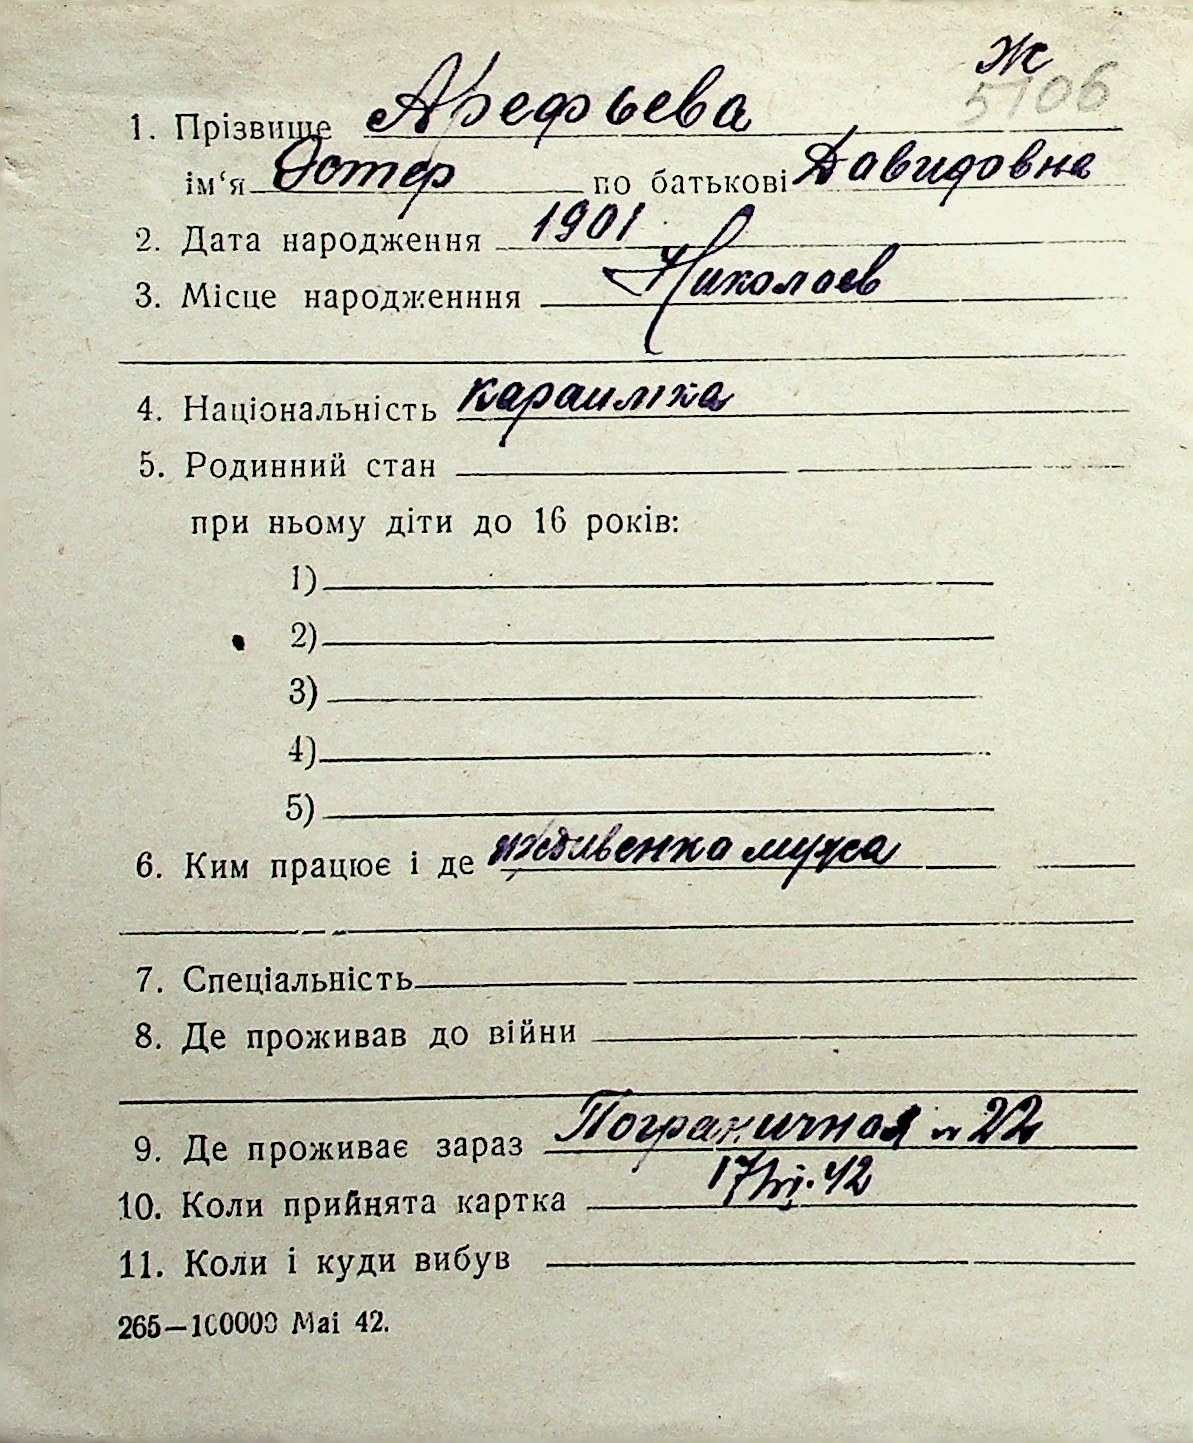 Ж
5106
1. Прізвище Арефьева
ім‘я Эстер по батькові Давидовна
2. Дата народження 1901
3. Місце народженння Николаев
4. Національність караимка
5. Родинний стан
при ньому діти до 16 років:
1)
2)
3)
4)
5)
6. Ким працює і де иждивенка мужа
7. Спеціальність
8. Де проживав до війни
9. Де проживає зараз Пограничная № 22
10. Коли прийнята картка 17/VI.42
11. Коли і куди вибув
265—100000 Маі 42.